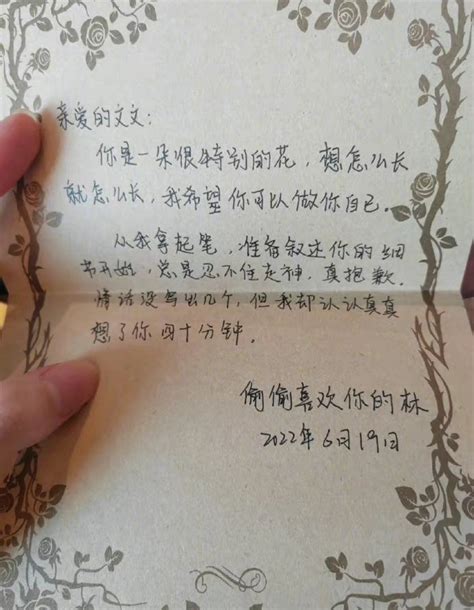 亲爱的文文：
你是一朵很特别的花，想怎么长
就怎么长，我希望你可以做你自己。
从我拿起笔，准备叙述你的细
节开始，总是忍不住走神，真抱歉。
情话没写出几个，但我却认认真真
想了你四十分钟。
偷偷喜欢你的林
2022年6月19日